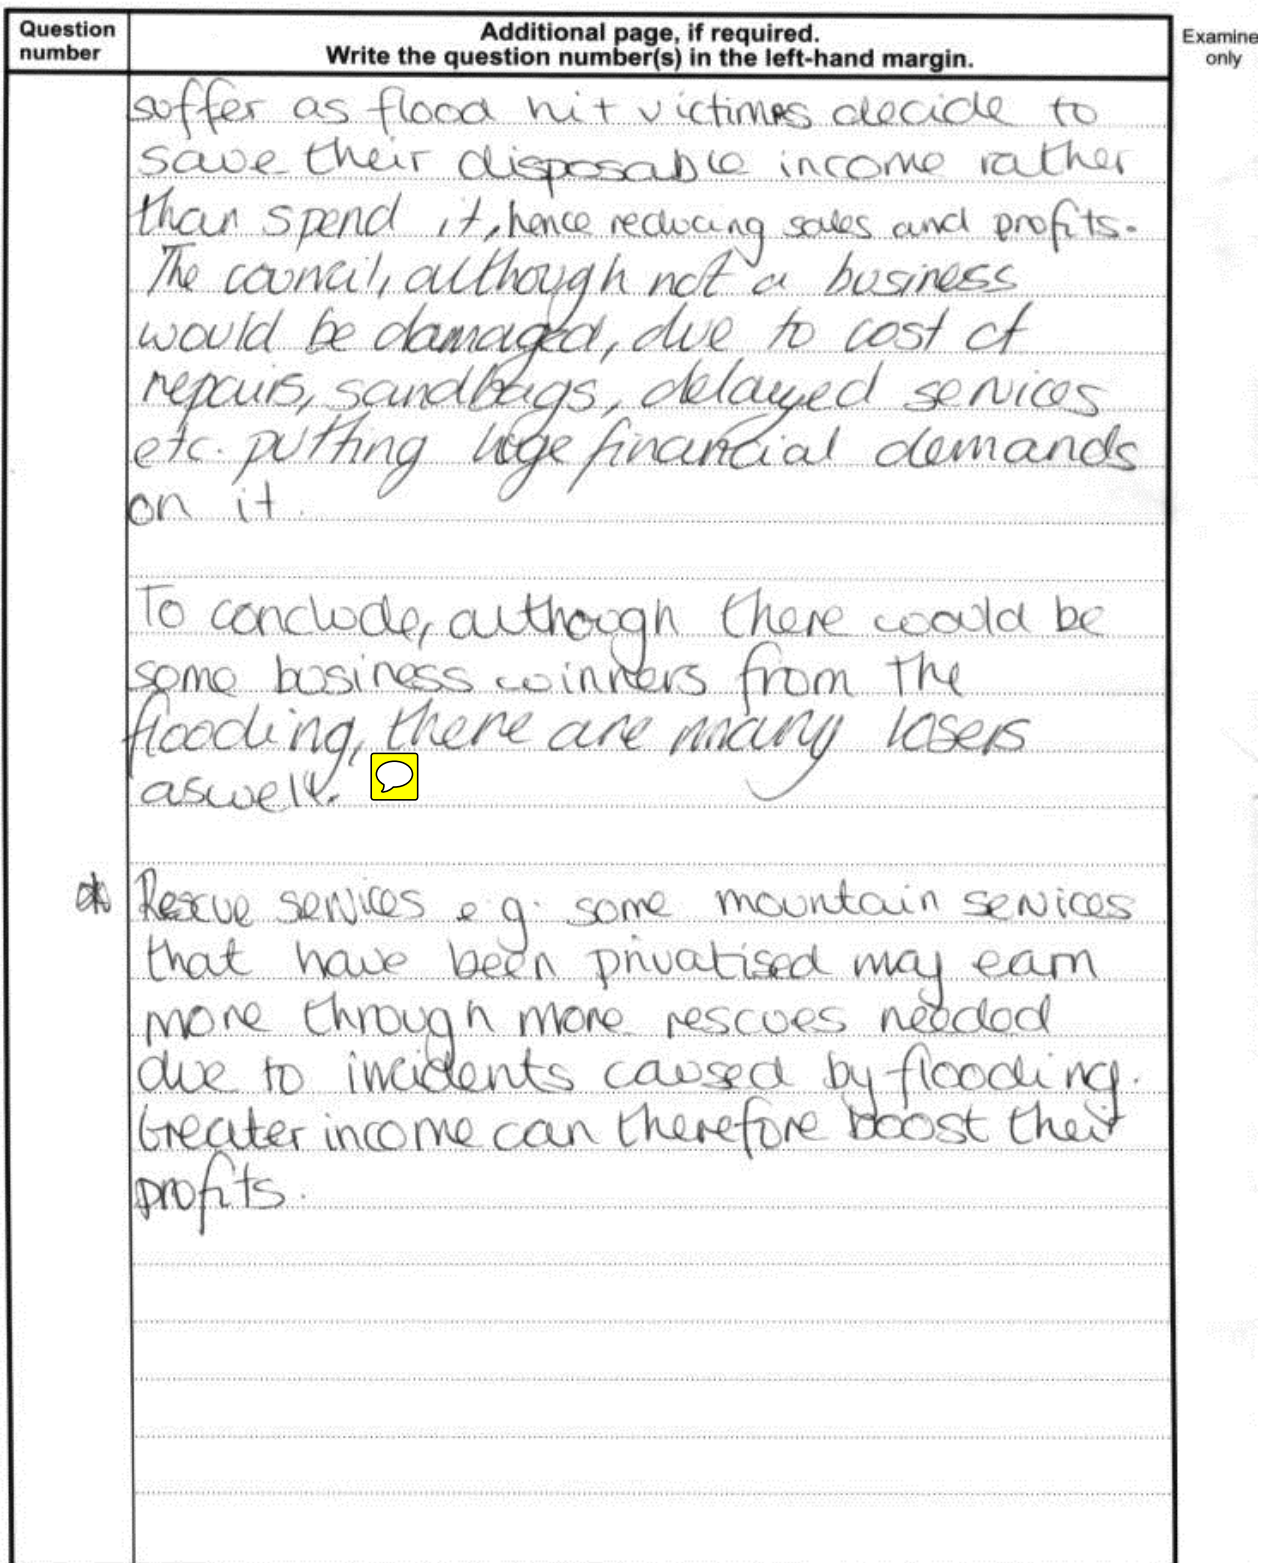 Question number
Additional page, if required.
Write the question number(s) in the left-hand margin.
Examine
only
suffer as flood hit victims decide to
save their disposable income rather
than spend it, hence reducing sales and profits.
The council, although not a business
would be damaged, due to cost of
repairs, sandbags, delayed services
etc. putting huge financial demands
on it.
To conclude, although there would be
some business winners from the
flooding, there are many losers
aswell.
Rescue services e.g. some mountain services
that have been privatised may earn
more through more rescues needed
due to incidents caused by flooding.
Greater income can therefore boost their
profits.